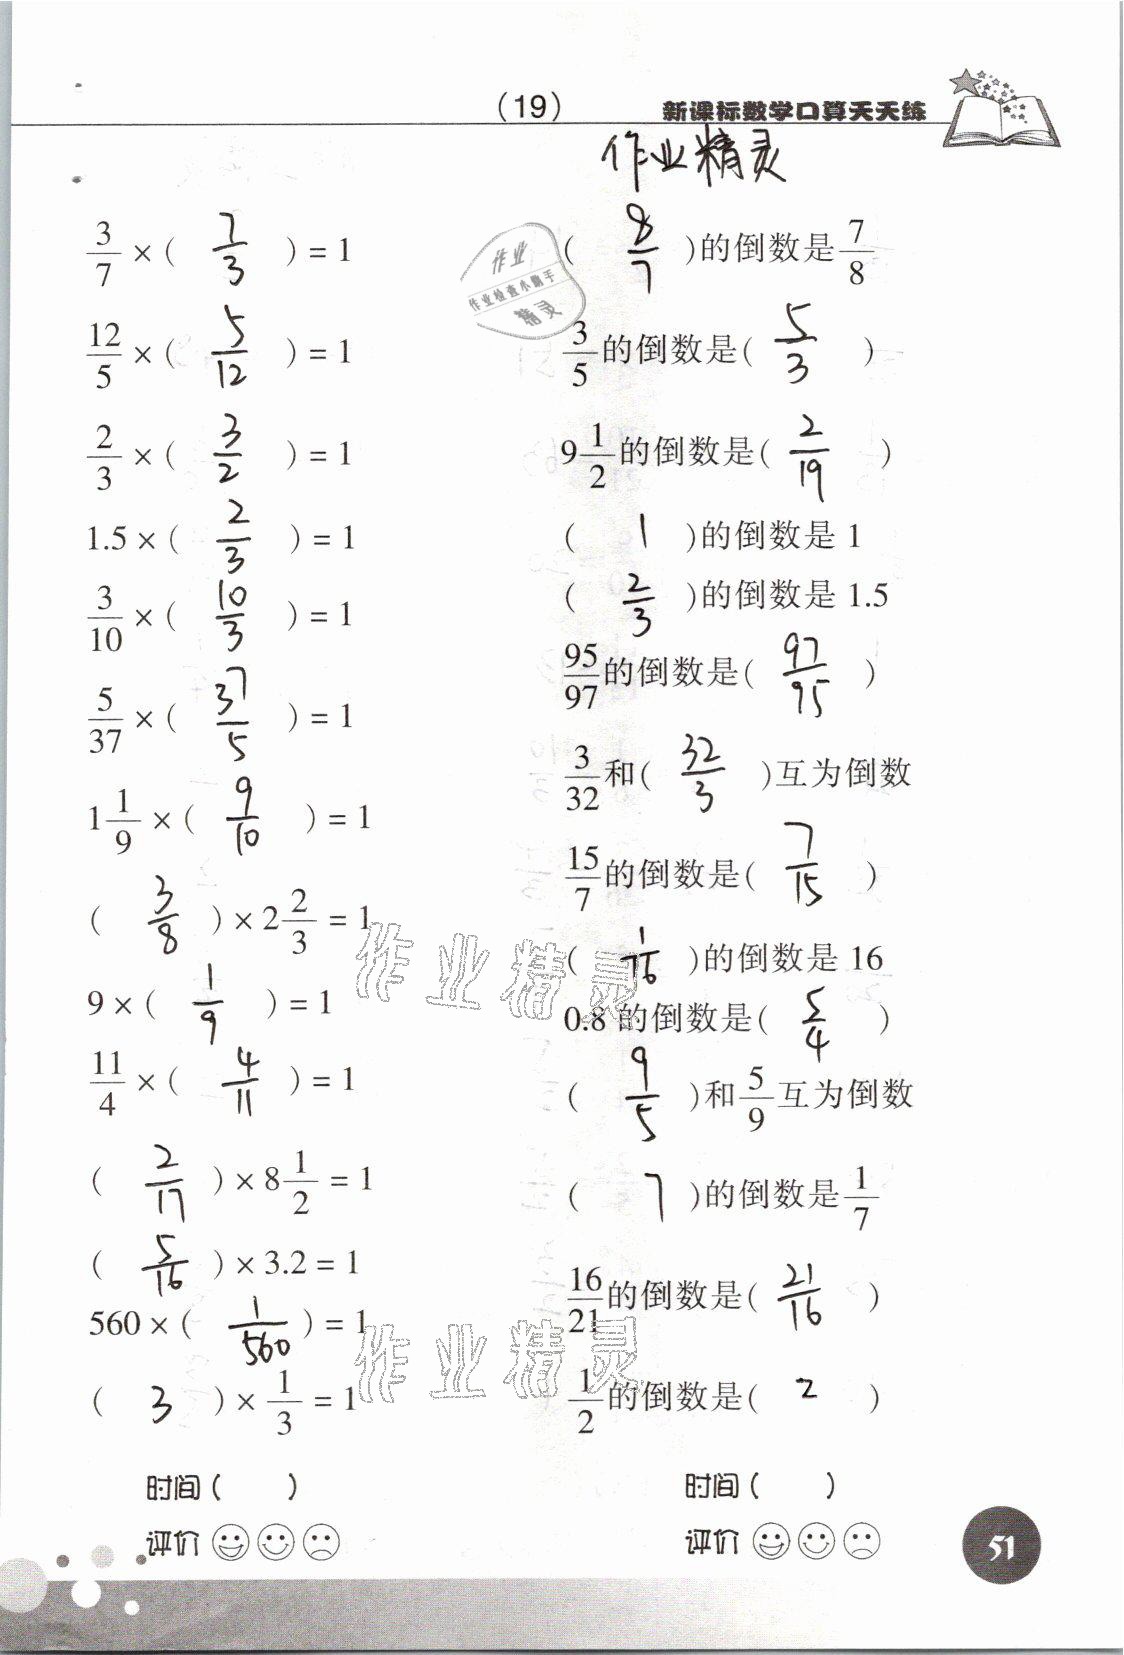 (19)
新课标数学口算天天练
作业精灵
作业
作业检查小助手
精灵
3/7 × ( 7/3 ) = 1
12/5 × ( 5/12 ) = 1
2/3 × ( 3/2 ) = 1
1.5 × ( 2/3 ) = 1
3/10 × ( 10/3 ) = 1
5/37 × ( 37/5 ) = 1
1 1/9 × ( 9/10 ) = 1
( 3/8 ) × 2 2/3 = 1
9 × ( 1/9 ) = 1
11/4 × ( 4/11 ) = 1
( 2/17 ) × 8 1/2 = 1
( 5/16 ) × 3.2 = 1
560 × ( 1/560 ) = 1
( 3 ) × 1/3 = 1
时间 ( )
评价
( 8/7 )的倒数是 7/8
3/5 的倒数是( 5/3 )
9 1/2 的倒数是( 2/19 )
( 1 )的倒数是 1
( 2/3 )的倒数是 1.5
95/97 的倒数是( 97/95 )
3/32 和( 32/3 )互为倒数
15/7 的倒数是( 7/15 )
( 1/16 )的倒数是 16
0.8 的倒数是( 5/4 )
( 9/5 )和 5/9 互为倒数
( 7 )的倒数是 1/7
16/21 的倒数是( 21/16 )
1/2 的倒数是( 2 )
时间 ( )
评价
作业精灵
作业精灵
51